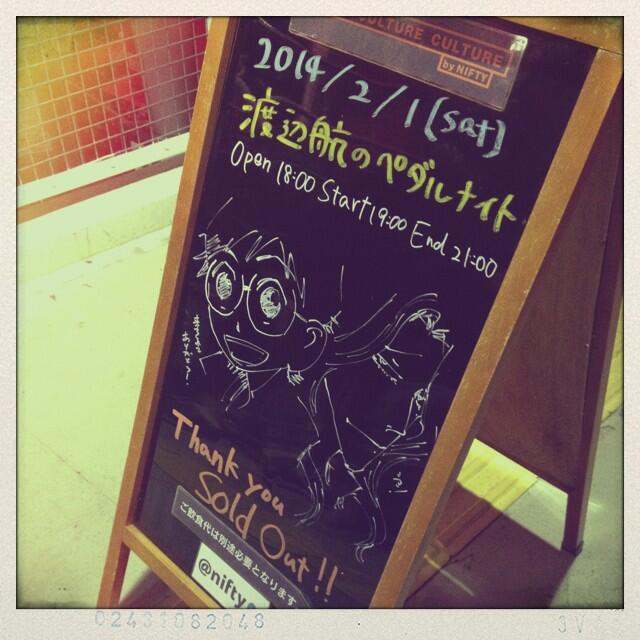 CULTURE CULTURE
by NIFTY
2014/2/1 (sat)
渡辺航のペダルナイト
Open 18:00 Start 19:00 End 21:00
Thank you
Sold Out!!
ご飲食代は別途必要となります
@nifty
02431082048
3V